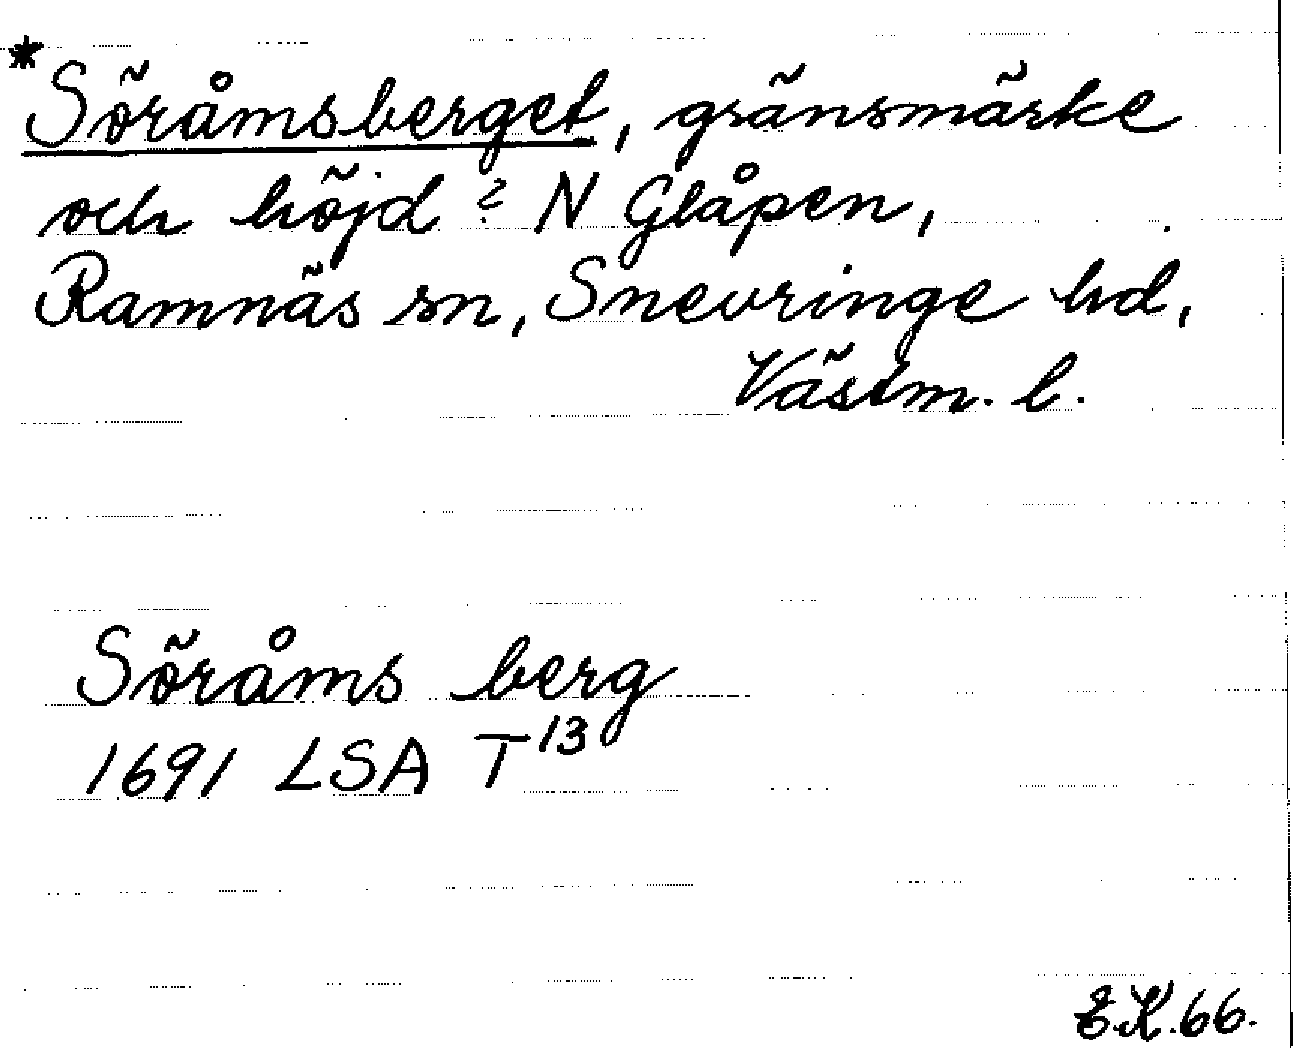 *Söråmsberget, gränsmärke
och höjd ? N Glåpen,
Ramnäs sn, Snevringe hd,
Västm. l.
Söråms berg
1691 LSA T¹³
E.K.66.